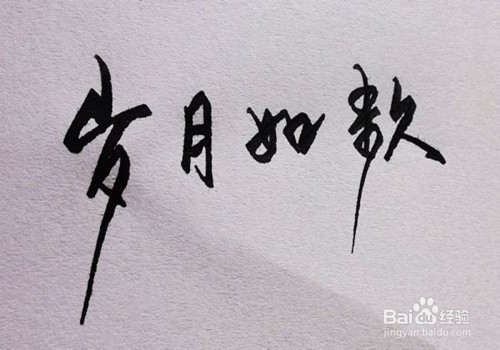 岁月如歌
Baidu经验
jingyan.baidu.com